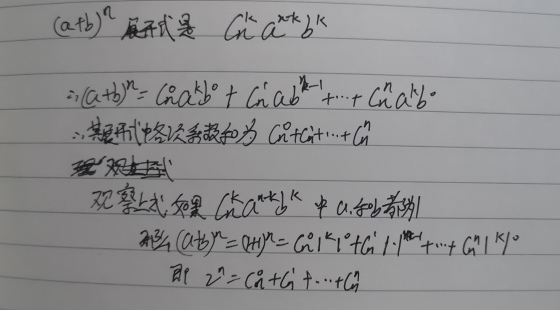 (a+b)^n 展开式是 C_n^k a^{n-k} b^k
∴(a+b)^n = C_n^0 a^k b^0 + C_n^1 a b^{k-1} + … + C_n^n a^k b^0
∴其展开式中各项系数和为 C_n^0+C_n^1+…+C_n^n
观察上式 如果 C_n^k a^{n-k} b^k 中 a,和b都为1
那么 (a+b)^n = (1+1)^n = C_n^0 1^k 1^0 + C_n^1 1·1^{k-1} + … + C_n^n 1^k 1^0
即 2^n = C_n^0 + C_n^1 + … + C_n^n